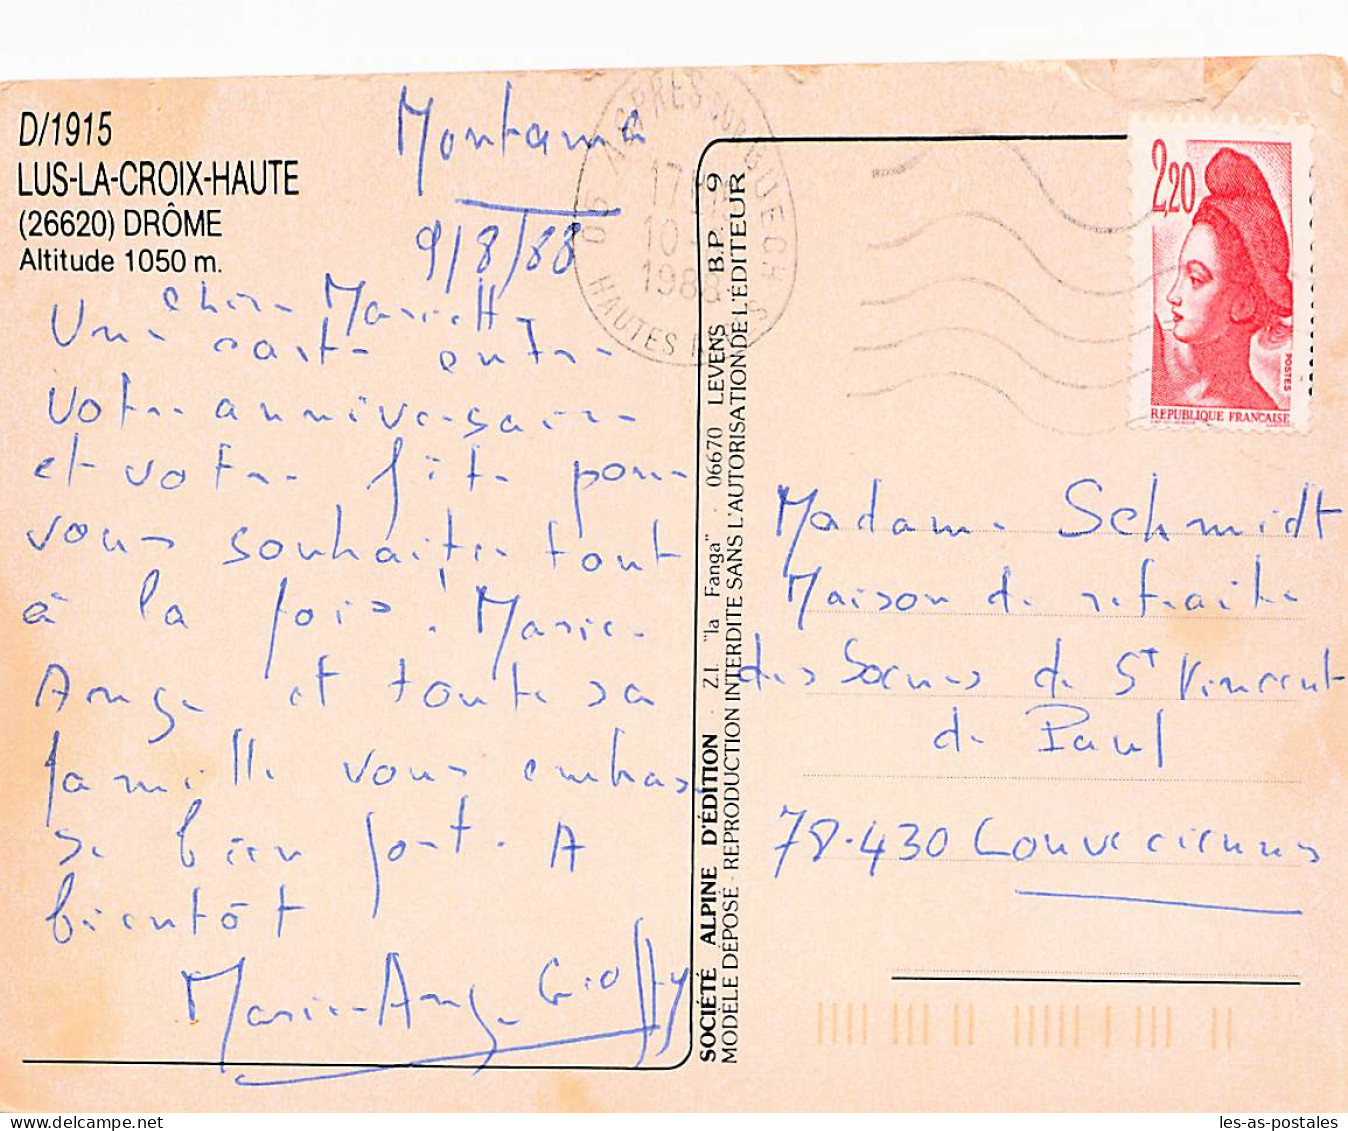 D/1915
LUS-LA-CROIX-HAUTE
(26620) DRÔME
Altitude 1050 m.
Montama
9/8/88
Chère Mariette
Une carte entre
votre anniversaire
et votre fête pour
vous souhaiter tout
à la fois! Marie-
Ange et toute sa
famille vous embras
se bien fort. A
bientôt
Marie-Ange Gioffy
SOCIÉTÉ ALPINE D'ÉDITION · Z.I. "la Fanga" · 06670 LEVENS B.P. 9
MODELE DÉPOSÉ - REPRODUCTION INTERDITE SANS L'AUTORISATION DE L'ÉDITEUR
05 ASPRES SUR BUECH
17
10
1988
HAUTES ALPES
2,20
POSTES
REPUBLIQUE FRANCAISE
Madame Schmidt
Maison de retraite
des Soeurs de St Vincent
de Paul
78.430 Louveciennes
les-as-postales